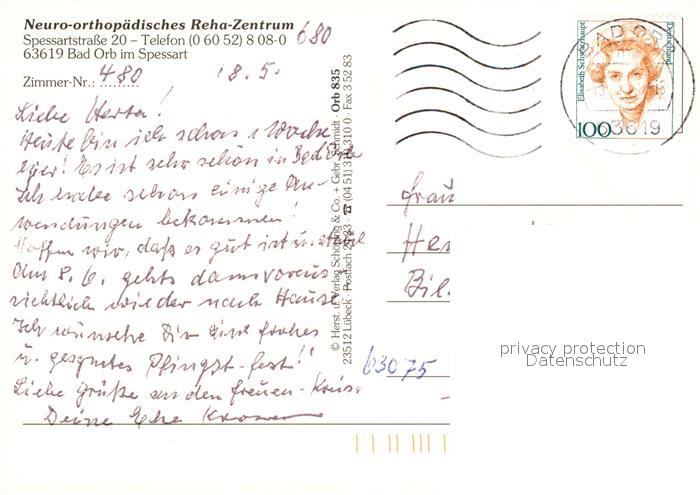 Neuro-orthopädisches Reha-Zentrum
Spessartstraße 20 – Telefon (0 60 52) 8 08-0 680
63619 Bad Orb im Spessart
Zimmer-Nr.: 480 18.5.
Liebe Herta!
Heute bin ich schon 1 Woche
hier! Es ist sehr schön in Bad Orb
Ich habe schon einige An-
wendungen bekommen!
Hoffen wir, daß es gut ist u.
Am 8. 6. gehts dann voraus
sichtlich wieder nach Hause
Ich wünsche Dir ein frohes
u. gesegnetes Pfingst-fest!!
Liebe Grüße an den frauen-Kreis.
Deine
© Herst. u. Verlag Schöning & Co. + Gebr. Schmidt · Orb 835
23512 Lübeck · Postfach
Elisabeth Schwarzhaupt
Deutschland
100
BAD ORB
63619
Frau
Her
Bil
63075
privacy protection
Datenschutz